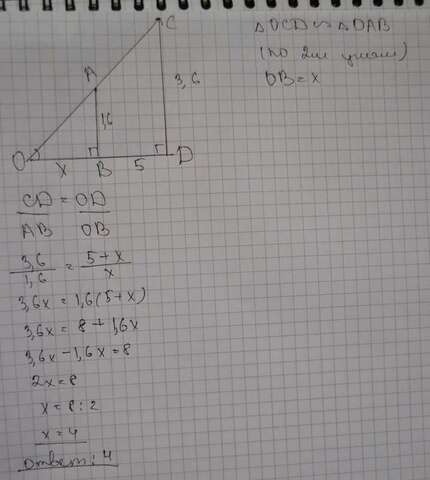 C
A
3,6
1,6
O x B 5 D
△ OCD ∾ △ OAB
(по 2м углам)
OB = x
CD = OD
AB OB
3,6 = 5+x
1,6 x
3,6x = 1,6(5+x)
3,6x = 8 + 1,6x
3,6x - 1,6x = 8
2x = 8
x = 8 : 2
x = 4
Ответ: 4